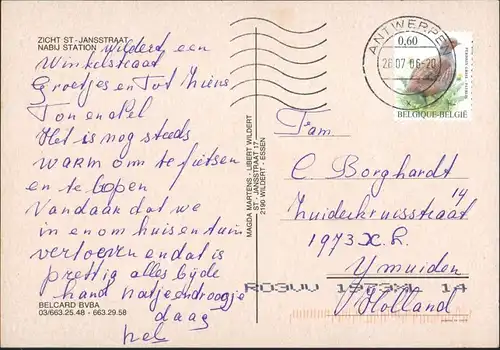 ZICHT ST-JANSSTRAAT
NABIJ STATION
Wilderd een
Winkelstraat
Groetjes en Tot Ziens
Ton en Nel
Het is nog steeds
WARM om te fietsen
en te lopen
Vandaar dat we
in en om huis en tuin
vertoeven en dat is
prettig alles bij de
hand natje en droogje
daag
Nel
BELCARD BVBA
03/663.25.48 - 663.29.58
MAGDA MARTENS - LIBERT WILDERT
ST - JANSSTRAAT 17
2190 WILDERT - ESSEN
ANTWERPEN
26.07.06-20
0,60
BELGIQUE-BELGIË
Fam.
C Borghardt
Zuiderkruisstraat 14
1973 X.L.
Ymuiden
Holland
R03VV 1973XL 14